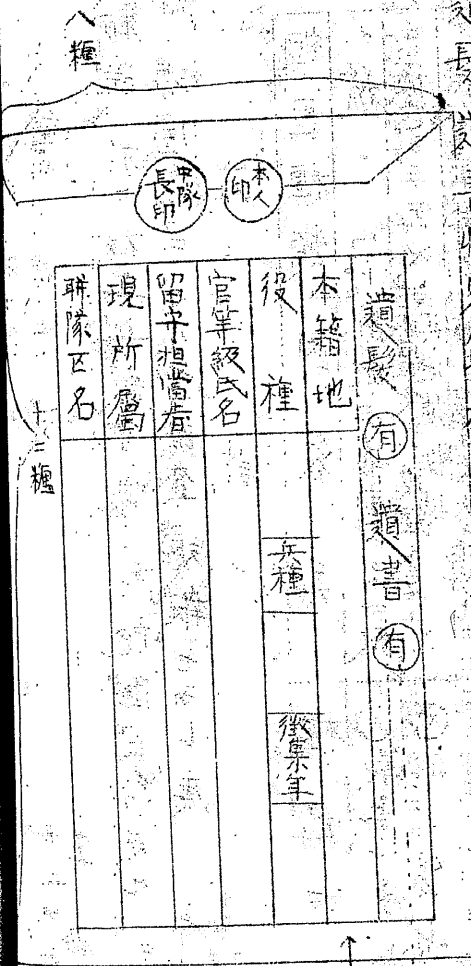 八糎
本人印
中隊長印
遺髪 有 遺書 有
本籍地
役種 兵種 徴集年
官等級氏名
留守担当者
現所属
聯隊区名
十二糎